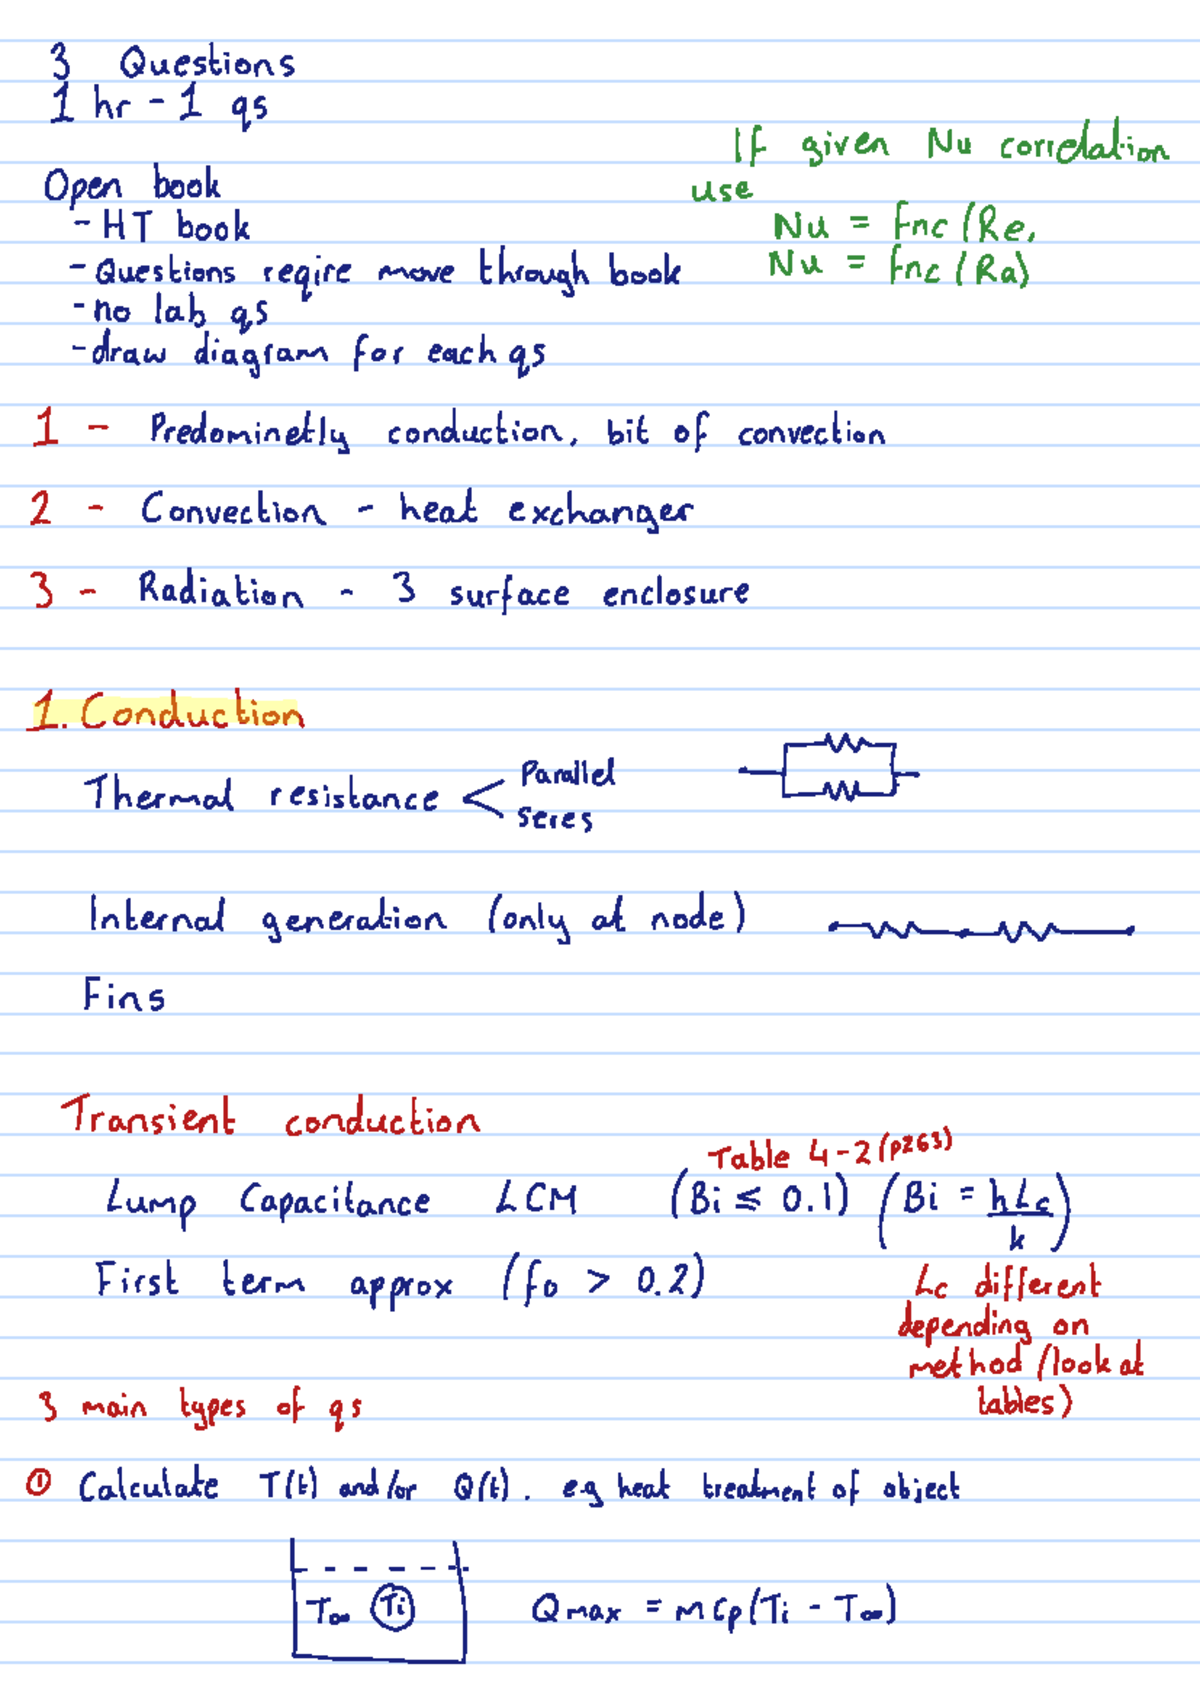 3 Questions
1 hr - 1 qs
If given Nu correlation
use
Nu = fnc (Re,
Nu = fnc (Ra)
Open book
- HT book
- Questions reqire move through book
- no lab qs
- draw diagram for each qs
1 - Predominetly conduction, bit of convection
2 - Convection - heat exchanger
3 - Radiation - 3 surface enclosure
1. Conduction
Thermal resistance < Parallel
seres
Internal generation (only at node)
Fins
Transient conduction
Table 4-2 (p263)
Lump Capacitance LCM (Bi ≤ 0.1) (Bi = hLc/k)
First term approx (fo > 0.2)
Lc different
depending on
method (look at
tables)
3 main types of qs
① Calculate T(t) and/or Q(t). e.g heat treatment of object
T∞ Ti Qmax = mCp(Ti - T∞)